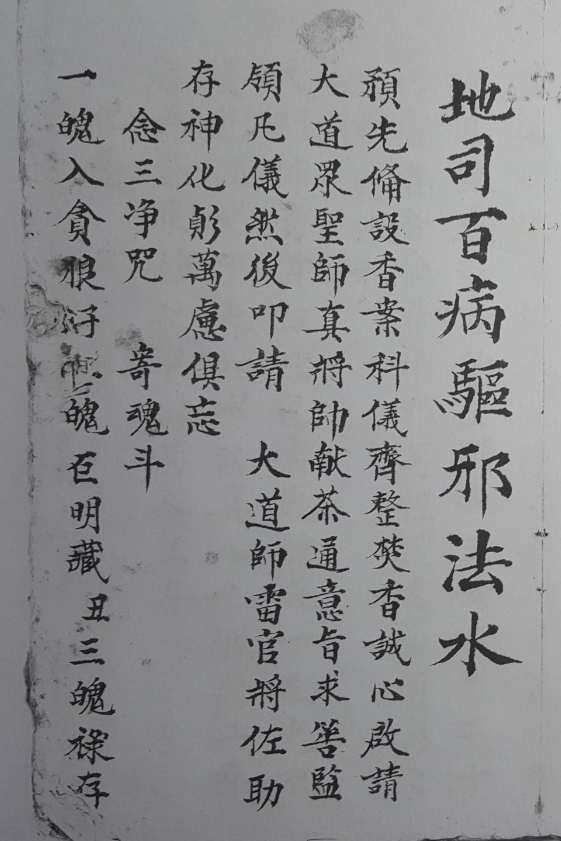 地司百病驅邪法水
預先俻設香案科儀齊整焚香誠心啟請
大道眾聖師真將帥献茶通意旨求善監
領凡儀然後叩請　大道師雷官將佐助
存神化𧵍萬慮俱忘
念三净咒　寄魂斗
一魄入貪狼　二魄巨明藏丑三魄祿存